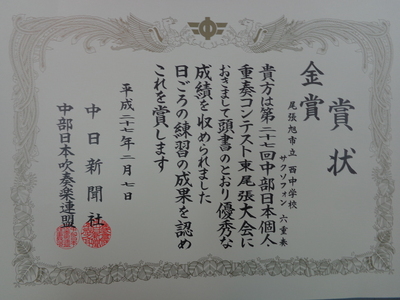 賞状
金賞
尾張旭市立 西中学校
サクソフォン 六重奏
貴方は第二十七回中部日本個人
重奏コンテスト東尾張大会に
おきまして頭書のとおり優秀な
成績を収められました
日ごろの練習の成果を認め
これを賞します
平成二十七年二月七日
中日新聞社
中部日本吹奏楽連盟